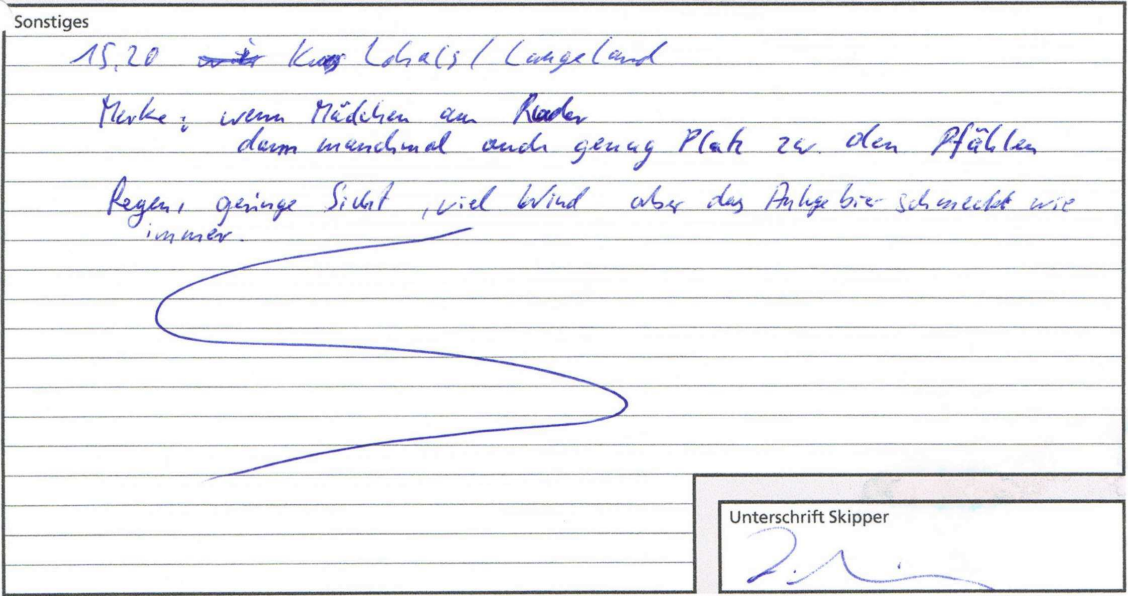 Sonstiges
15.20 Kurs Lohals / Langeland
Merke: wenn Mädchen am Ruder
dann manchmal auch genug Platz zw. den Pfählen
Regen, geringe Sicht, viel Wind aber das Anlegebier schmeckt wie
immer.
Unterschrift Skipper